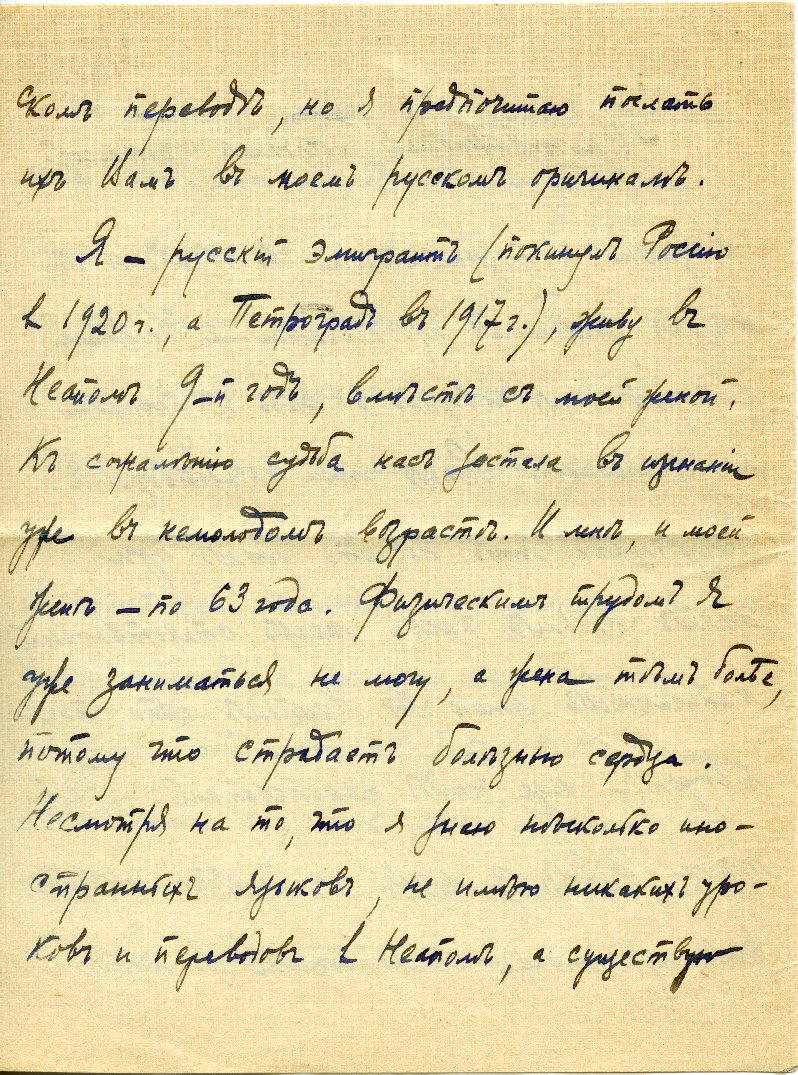 скомъ переводѣ, но я предпочитаю послать
ихъ Вамъ въ моемъ русскомъ оригиналѣ.
Я – русскій эмигрантъ (покинулъ Россію
в 1920 г., а Петроградъ въ 1917 г.), живу въ
Неаполѣ 9–й годъ, вмѣстѣ съ моей женой.
Къ сожалѣнію судьба насъ застала въ изгнаніи
уже въ немолодомъ возрастѣ. И мнѣ, и моей
женѣ – по 63 года. Физическимъ трудомъ я
уже заниматься не могу, а жена тѣмъ болѣе,
потому что страдаетъ болѣзнью сердца.
Несмотря на то, что я знаю нѣсколько ино-
странныхъ языковъ, не имѣю никакихъ уро-
ковъ и переводовъ в Неаполѣ, а существую